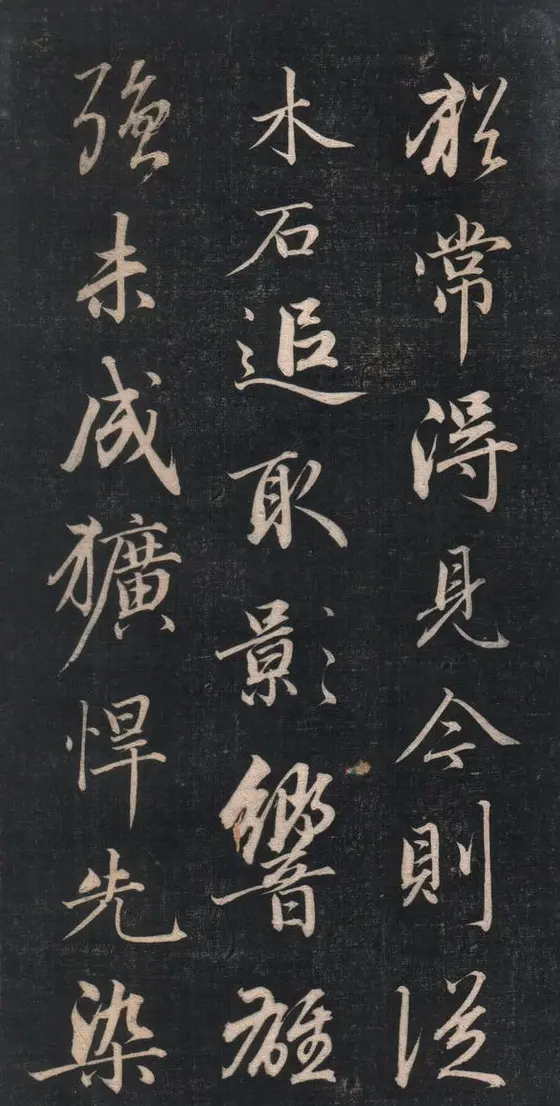 於常得見今則從
水石追取影響雄
強未成獷悍先染